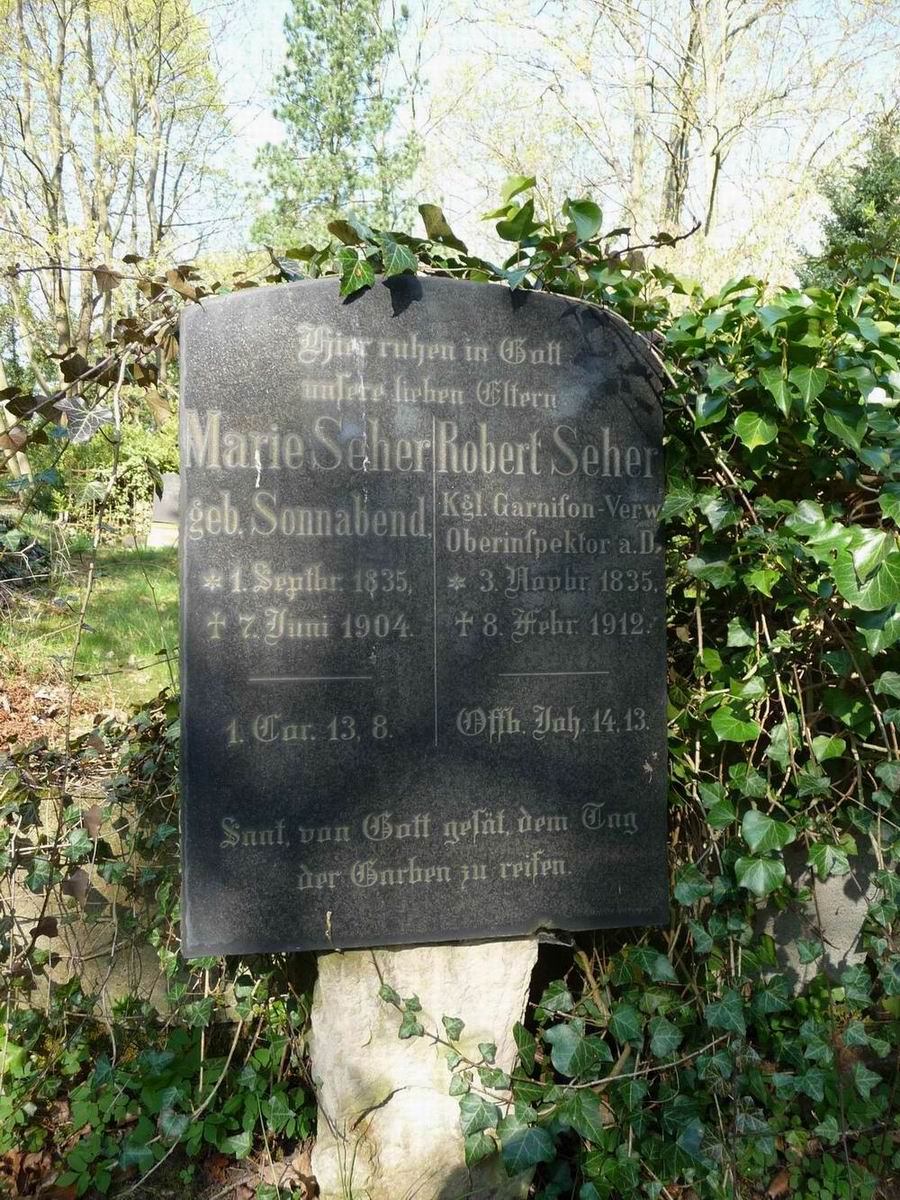 Hier ruhen in Gott
unsere lieben Eltern
Marie Seher
geb. Sonnabend,
* 1. Septbr. 1835,
† 7. Juni 1904.
1. Cor. 13, 8.
Robert Seher
Kgl. Garnison-Verw.
Oberinspektor a. D.
* 3. Novbr. 1835,
† 8. Febr. 1912.
Offb. Joh. 14, 13.
Saat, von Gott gesät, dem Tag
der Garben zu reifen.